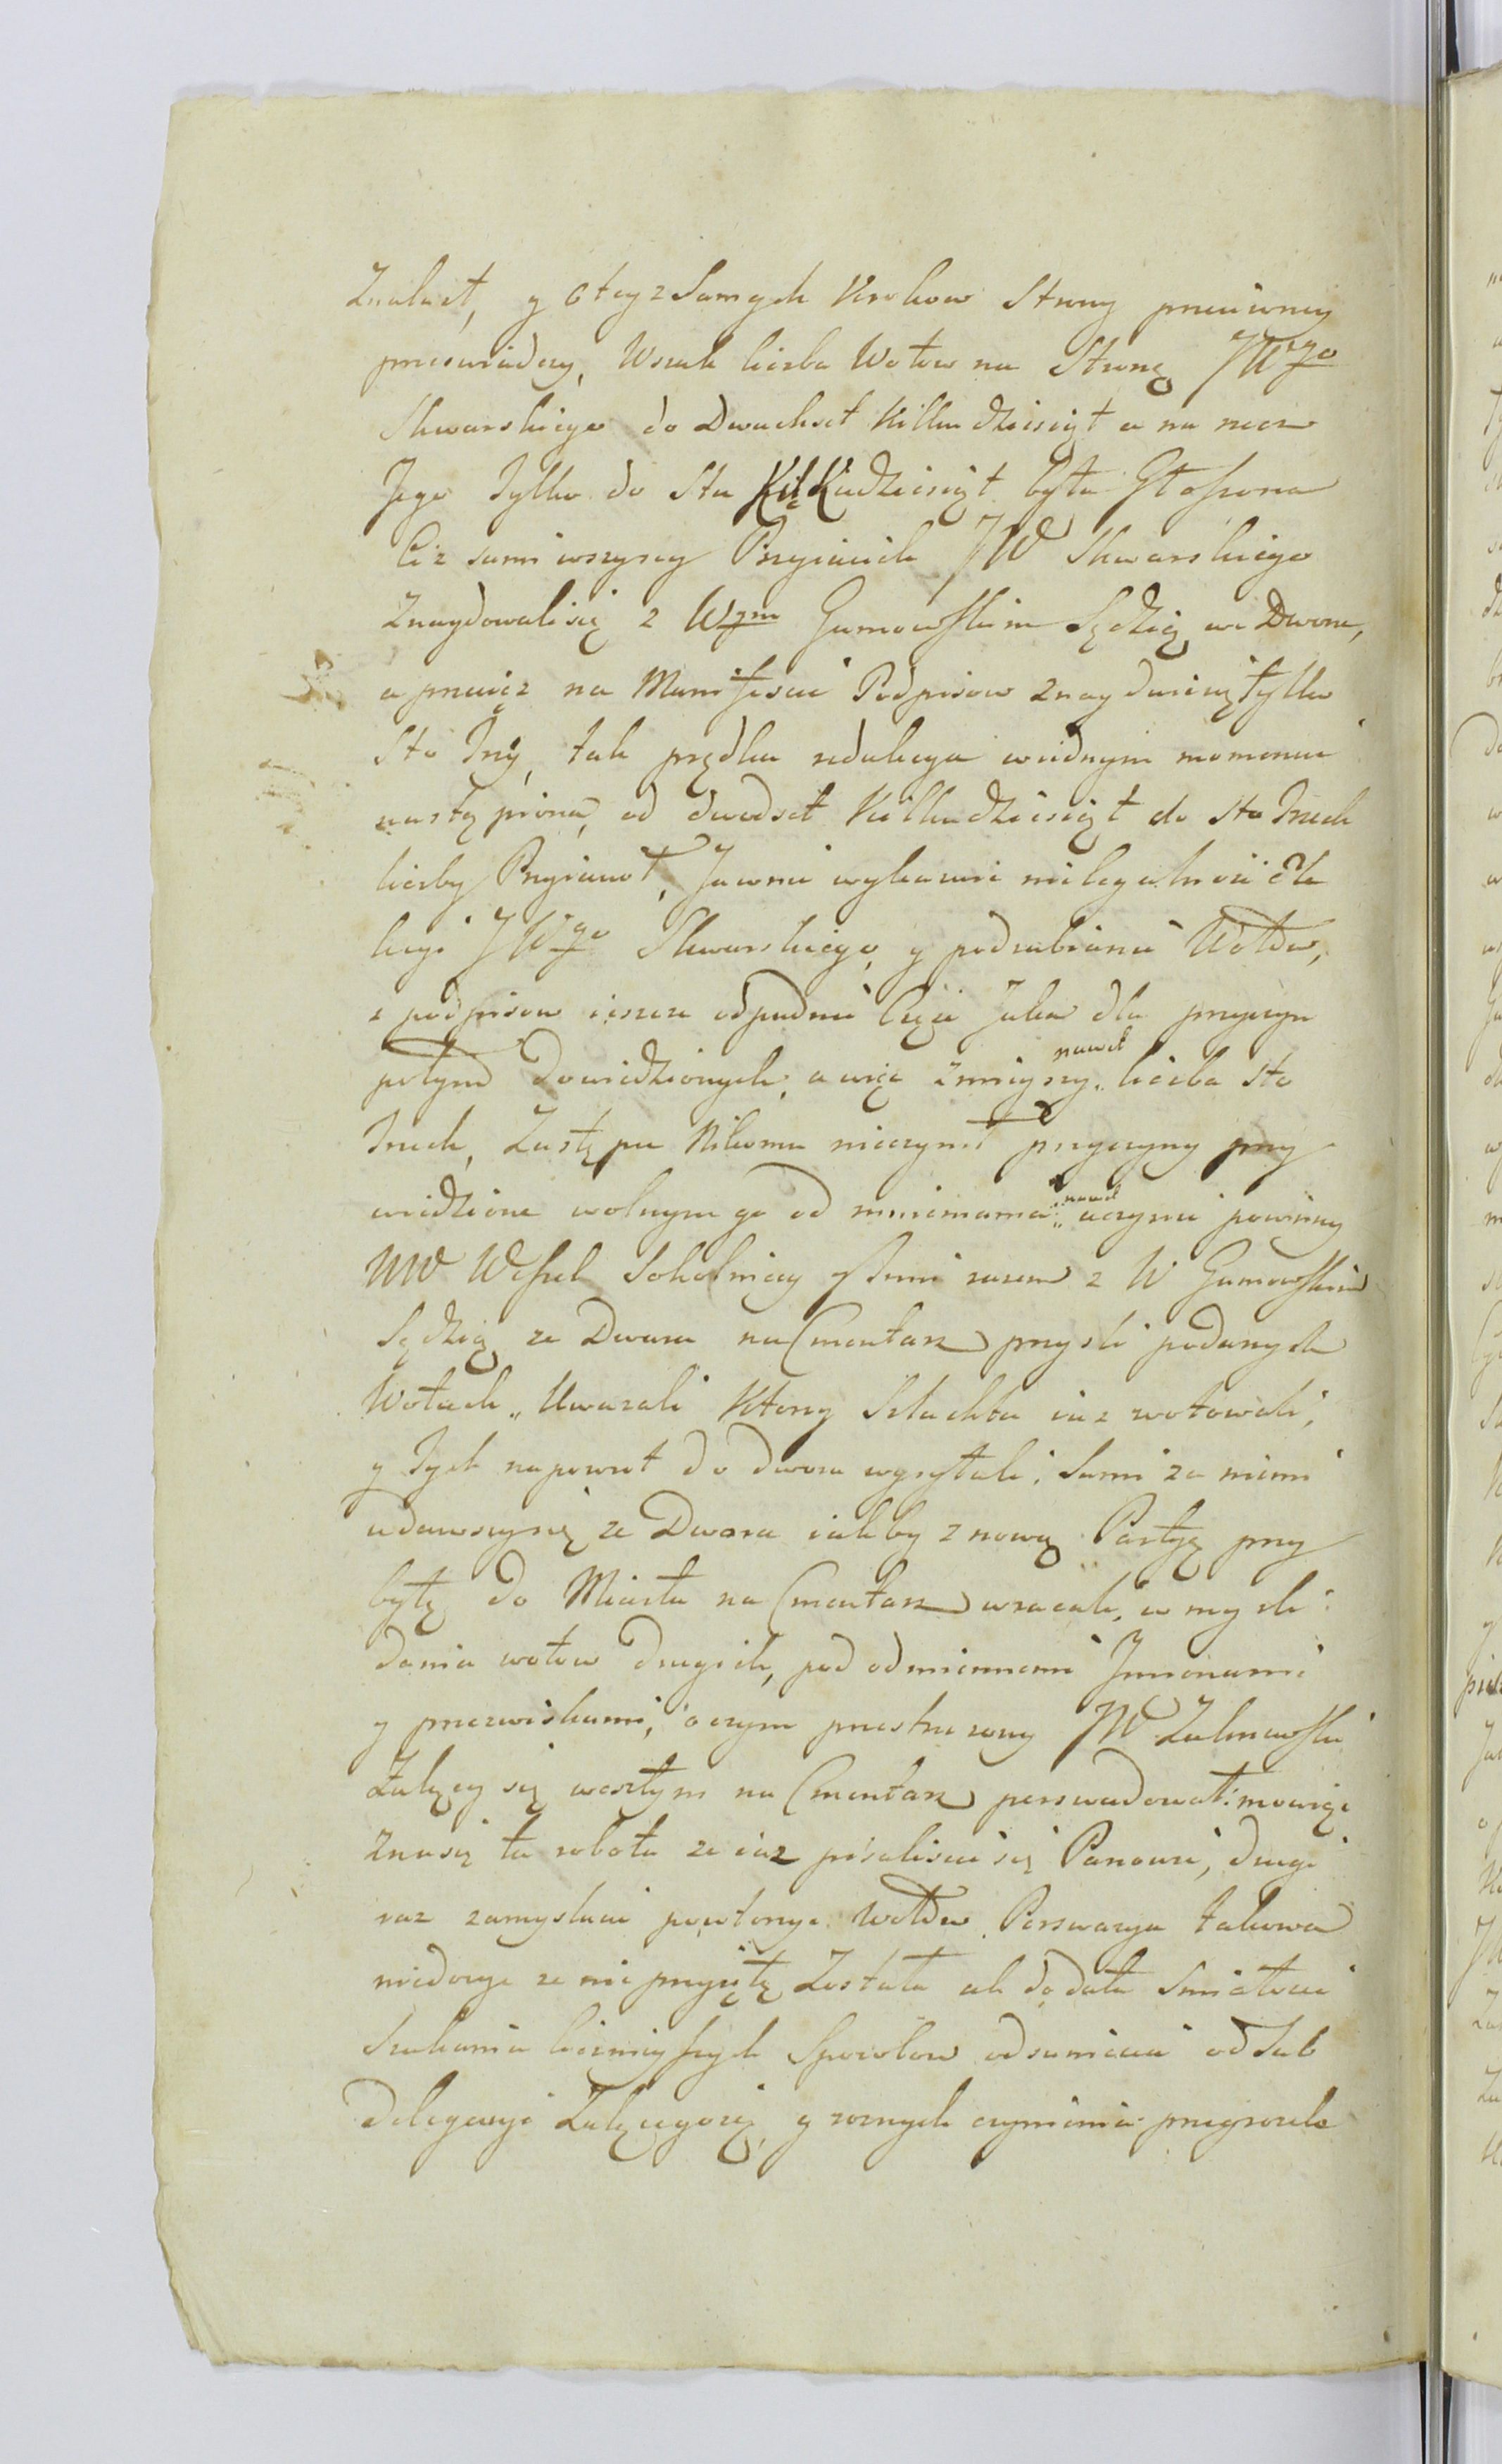 Znalazł, y o tey z Samych Krokow Strony przeciwney
przeswiadczy, Wszak liczba Wotow na Stronę JWgo
Skwarskiego do Dwuchset Kilku dziesiąt a na rzecz
Jego Tylko do Sta Kilkudziesiąt była Głoszona
Ciz sami wszyscy Przyiaciele JW Skwarskiego
Znaydowali się z Wzm Gumowskim Sędzią we Dworze,
a przeciez na Manifescie Podpisow znayduie się tylko
Sto Trzy, tak prędka redukcya w iednym momencie
nastąpiona, od dwodset Kilkudziesiąt do Sta Trzech
liczby Przyiacioł, Jawnie wykazuie nielegalnosc
JWgo Skwarskiego, y podrabianie Wotow,
z podpisow ieszcze odpadnie Część Jaka dla przyczyn
potym Dowiedzionych, a więc zmnieyszy „nawet liczba sto
Trzech, Zastępu Nikomu nieczyni przyczyny przy
wiedzione wolnym go od mniemania „nawet uczynic powinny
WW Wessel Sokolnicy y Inni razem z W Gumowskim
Sędzią ze Dwora na Cmentarz przyszli podanych
Wotach „Uwazali Ktorzy Szlachta iuz wotowali,
y Tych napowrot do dwora wysyłali, Sami za niemi
udawszy się ze Dwora iakby z nową Partyą przy
byłą do Miasta na Cmentarz wracali, w mysli
dania wotow drugich, pod odmiennemi Jmionami
y przezwiskami, o czym przestrzezony JW Zalmowski
Zalący się weszłym na Cmentarz perswadował: mowiąc
Zna się ta robota ze iuz pisaliscie się Panowie, drugi
raz zamyslacie powtorzyc Wotow. Perswazya takowa
niedosyc ze nie przyiętą Została ale dodała Smiałosci
Szukania licznieyszych Sposobow odsuniecia od Sub
Delegacyi Zalącego się, y roznych czynienia przegrozek